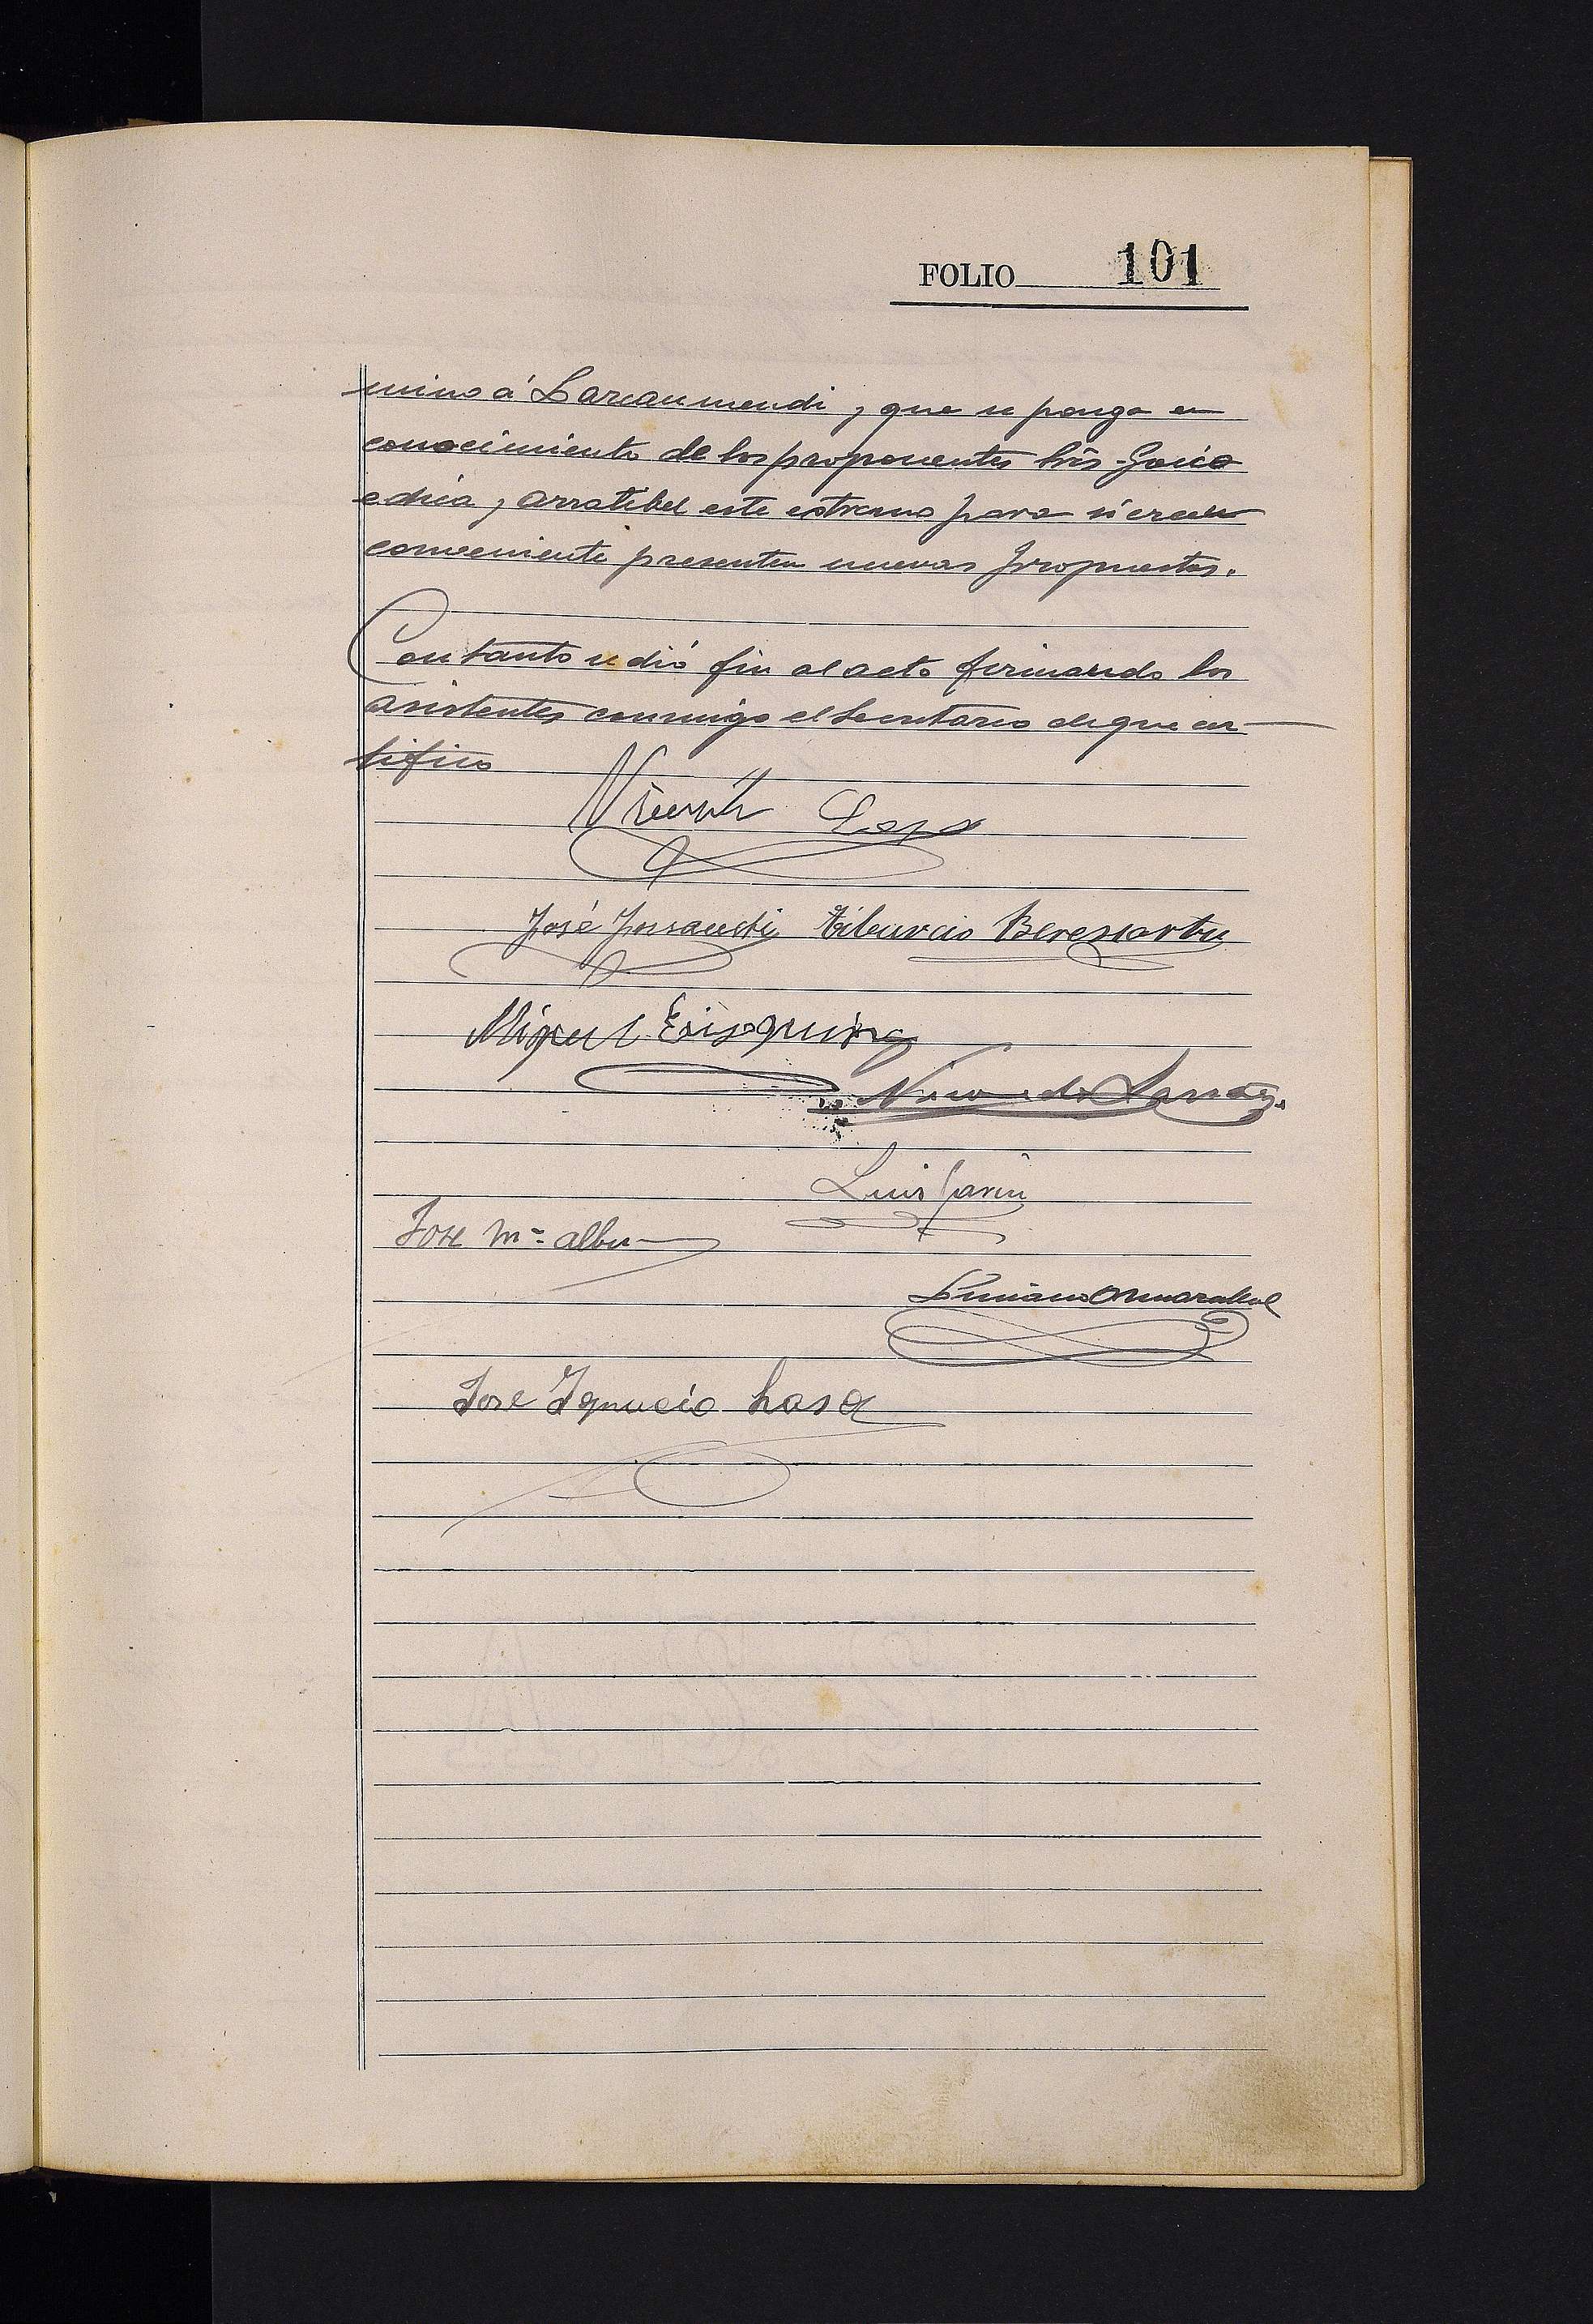 FOLIO 101
mino á Larcaumendi y que se ponga en
conocimiento de los proponentes Srs. Goico
echea y Arratibel este estremo para si creen
conveniente presenten nuevas propuestas.
Con tanto se dió fin al acto firmando los
asistentes conmigo el Secretario de que cer
tifico
Vicente Lasa
José Jossaueti Tiburcio Beresiartu
Miguel Eizaguirre
Luis Garin
Jose Mª albu
Luciano Amarabal
Jose Ygnacio Lasa